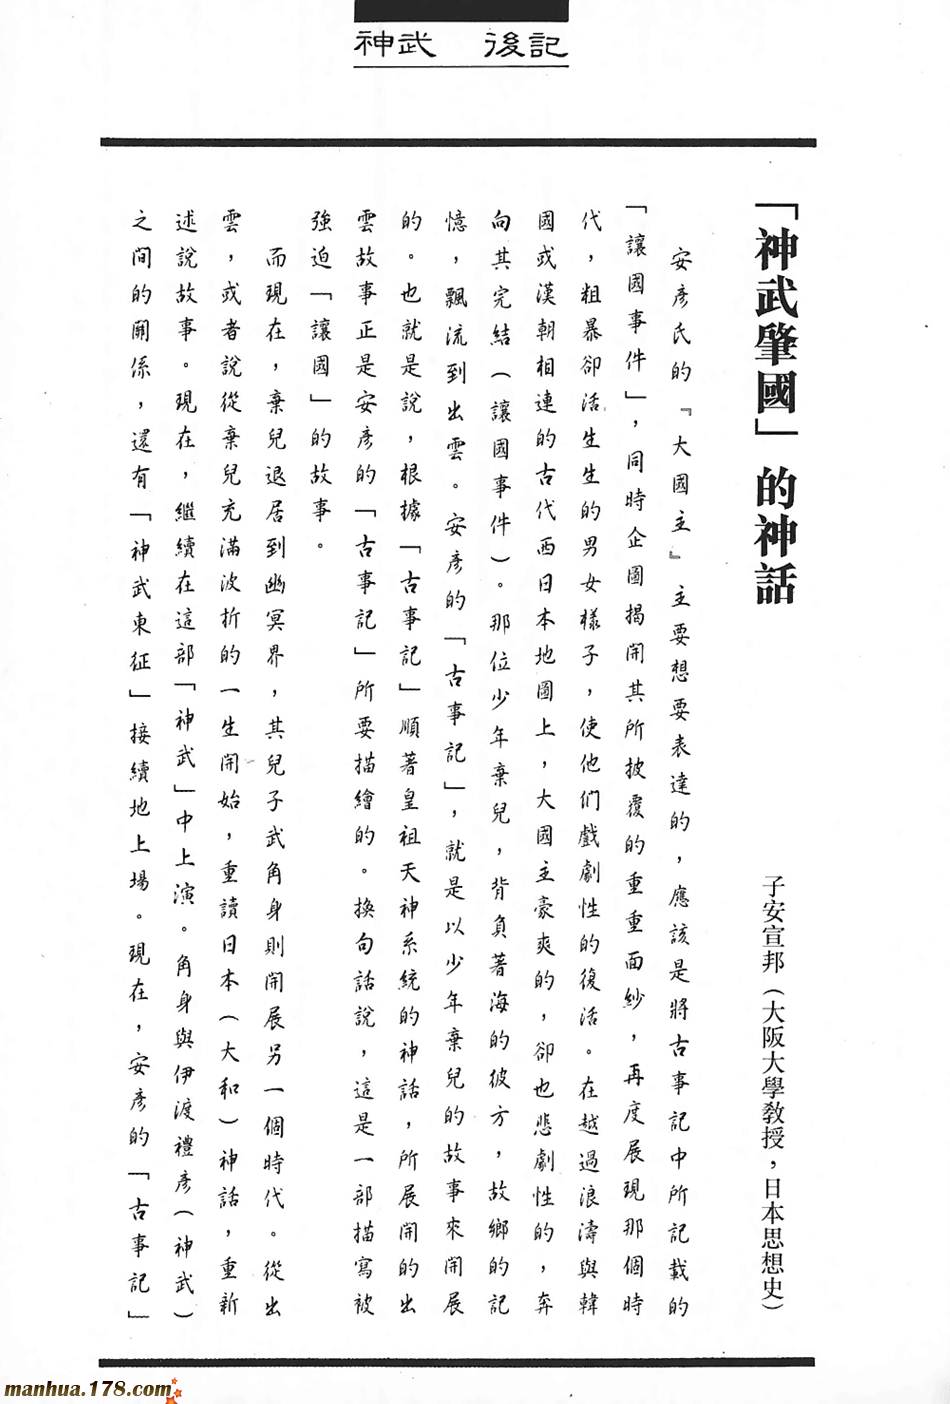 神武　後記
「神武肇國」的神話
子安宣邦（大阪大學教授，日本思想史）
安彥氏的『大國主』主要想要表達的，應該是將古事記中所記載的
「讓國事件」，同時企圖揭開其所披覆的重重面紗，再度展現那個時
代，粗暴卻活生生的男女樣子，使他們戲劇性的復活。在越過浪濤與韓
國或漢朝相連的古代西日本地圖上，大國主豪爽的，卻也悲劇性的，奔
向其完結（讓國事件）。那位少年棄兒，背負著海的彼方，故鄉的記
憶，飄流到出雲。安彥的「古事記」，就是以少年棄兒的故事來開展
的。也就是說，根據「古事記」順著皇祖天神系統的神話，所展開的出
雲故事正是安彥的「古事記」所要描繪的。換句話說，這是一部描寫被
強迫「讓國」的故事。
而現在，棄兒退居到幽冥界，其兒子武角身則開展另一個時代。從出
雲，或者說從棄兒充滿波折的一生開始，重讀日本（大和）神話，重新
述說故事。現在，繼續在這部「神武」中上演。角身與伊渡禮彥（神武）
之間的關係，還有「神武東征」接續地上場。現在，安彥的「古事記」
manhua.178.com